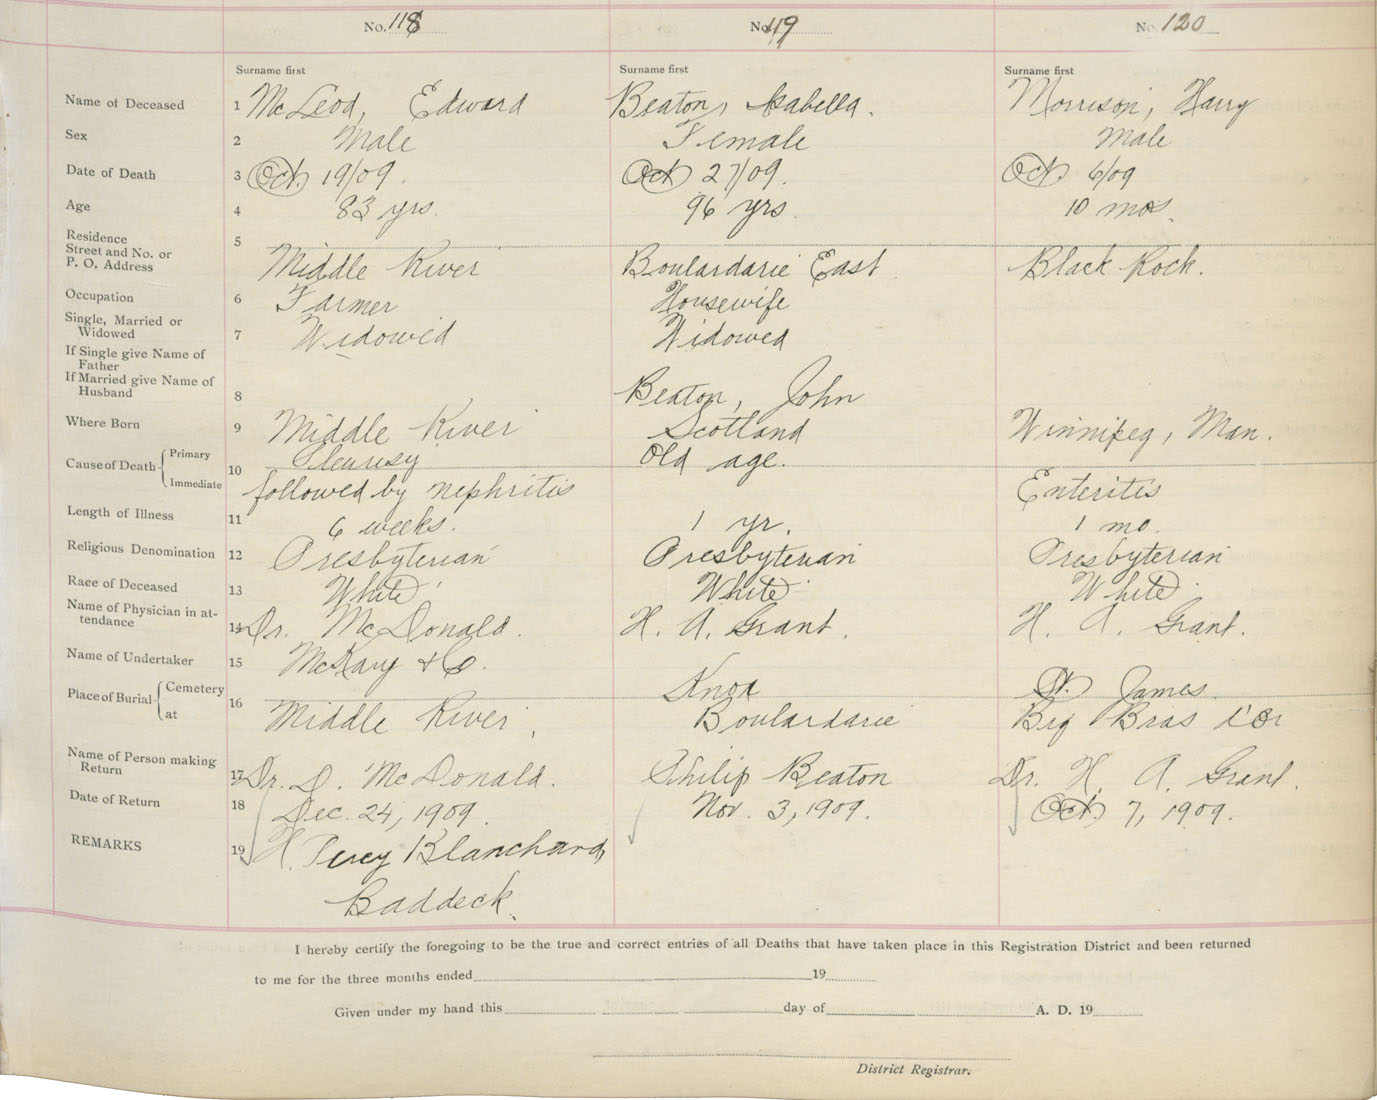 No. 118 No. 119 No. 120
Surname first Surname first Surname first
Name of Deceased 1 McLeod, Edward Beaton, Isabella. Morrison, Harry
Sex 2 Male Female Male
Date of Death 3 Oct. 19/09. Oct 27/09. Oct. 6/09
Age 4 83 yrs. 96 yrs. 10 mos.
Residence 5
Street and No. or
P. O. Address Middle River Boulardarie East Black Rock.
Occupation 6 Farmer Housewife
Single, Married or
Widowed 7 Widowed Widowed
If Single give Name of
Father
If Married give Name of
Husband 8 Beaton, John
Where Born 9 Middle River Scotland Winnipeg, Man.
Cause of Death Primary 10 Pleurisy Old age.
Immediate followed by nephritis Enteritis
Length of Illness 11 6 weeks. 1 yr. 1 mo.
Religious Denomination 12 Presbyterian Presbyterian Presbyterian
Race of Deceased 13 White White White
Name of Physician in at-
tendance 14 Dr. McDonald. H. A. Grant. H. A. Grant.
Name of Undertaker 15 McKay & Co.
Place of Burial Cemetery 16 Knox St. James.
at Middle River, Boulardarie Big Bras d'Or
Name of Person making
Return 17 Dr. D. McDonald. Philip Beaton Dr. H. A. Grant.
Date of Return 18 Dec. 24, 1909. Nov. 3, 1909. Oct. 7, 1909.
REMARKS 19 H. Percy Blanchard,
Baddeck.
I hereby certify the foregoing to be the true and correct entries of all Deaths that have taken place in this Registration District and been returned
to me for the three months ended 19
Given under my hand this day of A. D. 19
District Registrar.